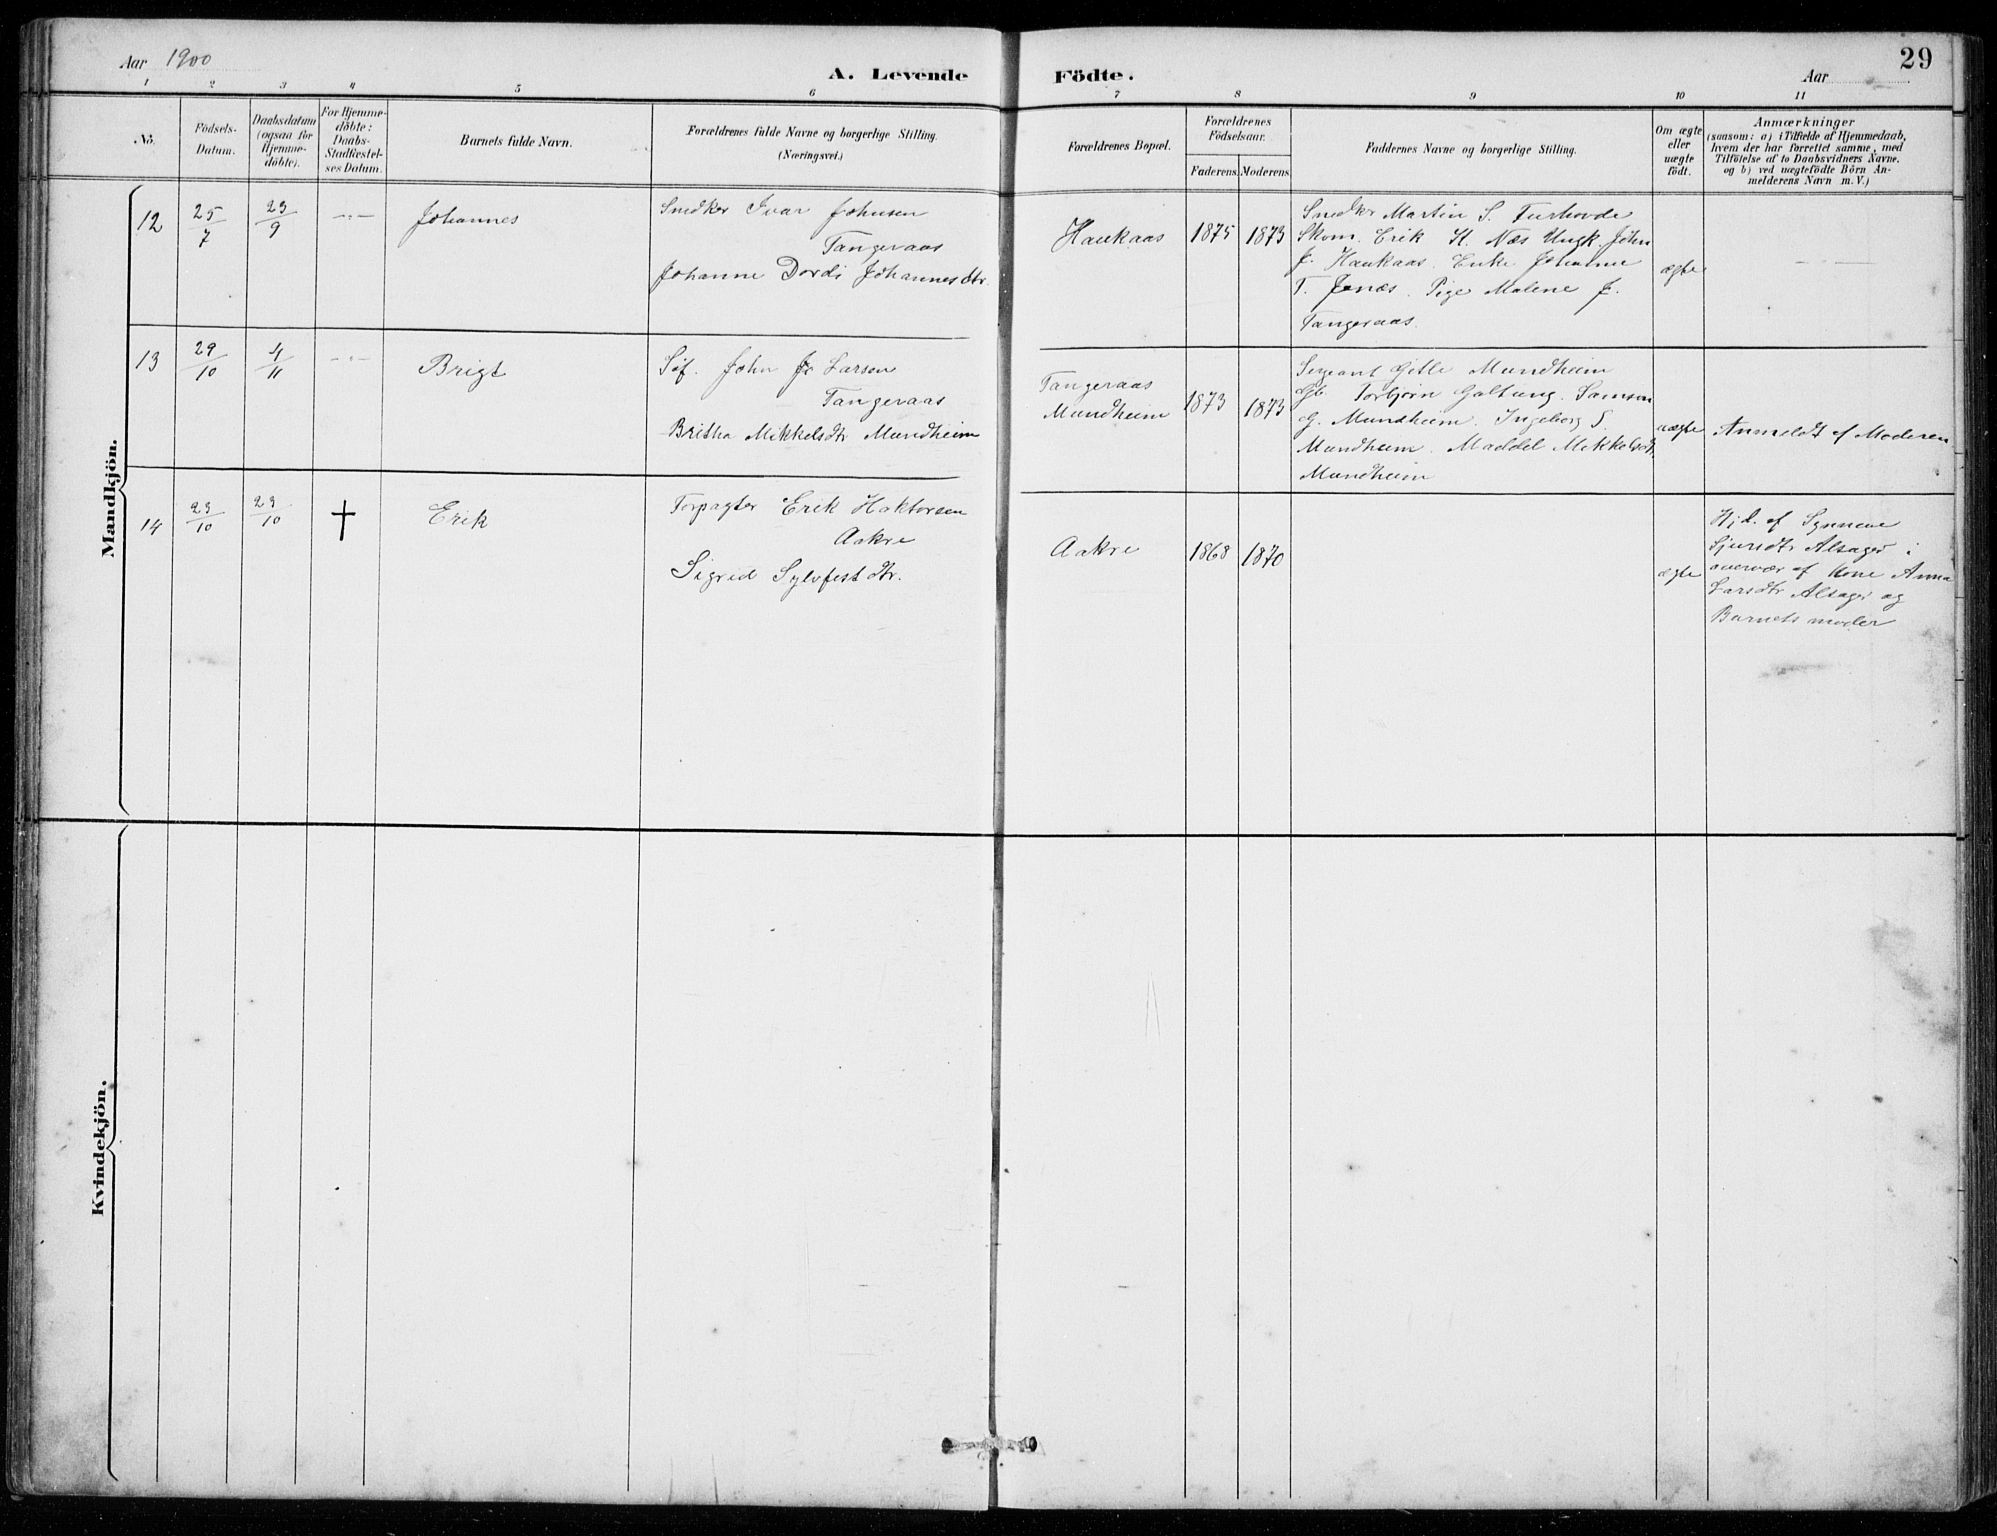 Aar 1900
A. Levende Födte.
Aar
29
1 2 3 4 5 6 7 8 9 10 11
No.
Födsels-
Datum.
Daabsdatum
(ogsaa for
Hjemme-
döbte).
For Hjemme-
döbte:
Daabs-
Stadfæstel-
ses Datum.
Barnets fulde Navn.
Forældrenes fulde Navne og borgerlige Stilling.
(Næringsvei.)
Forældrenes Bopæl.
Forældrenes
Födselsaar.
Faderens. Moderens.
Faddernes Navne og borgerlige Stilling.
Om ægte
eller
uægte
födt.
Anmærkninger
(saasom: a) i Tilfælde af Hjemmedaab,
hvem der har forrettet samme, med
Tilföielse af to Daabsvidners Navne.
og b) ved uægtefödte Börn An-
melderens Navn m. V.)
Mandkjön.
12
25/7
23/9
Johannes
Snedker Ivar Johnsen
Tangeraas
Johanne Dordi Johannesdtr.
Haukaas
1875
1873
Snedkr Martin S. Turhovde
Skom. Erik H. Næs Ungk. John
J. Haukaas. Enke Johanne
T. Jonæs. Pige Malene J.
Tangeraas.
ægte
13
29/10
4/11
Brigt
Søf. John Larsen
Tangeraas
Britha Mikkelsdtr Mundheim
Tangeraas
Mundheim
1873
1873
Sergeant Gitle Mundheim
Gb. Torbjørn Galtung. Samson
G. Mundheim. Ingeborg S.
Mundheim. Maddel Mikkelsdtr
Mundheim
uægte
Anmeldt af Moderen
14
23/10
23/10
†
Erik
Forpagter Erik Haktorsen
Aakre
Sigrid Sylvfestdtr.
Aakre
1868
1870
ægte
Hjd. af Synneve
Sjursdtr Alsager i
overvær af Kone Anna
Larsdtr Alsager og
Barnets moder
Kvindekjön.